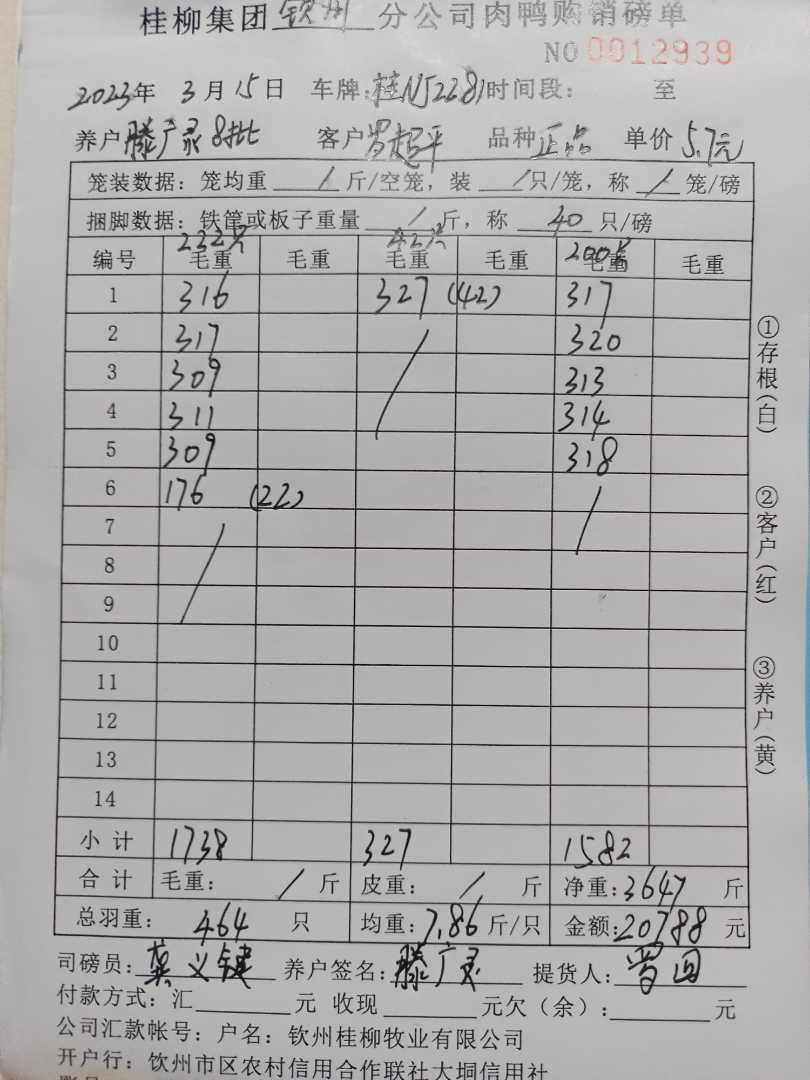 桂柳集团 钦州 分公司肉鸭购销磅单
NO 0012939
2023年 3月15日 车牌:桂N52281时间段: 至
养户滕广灵8批 客户罗超平 品种正品 单价5.7元
笼装数据: 笼均重 / 斤/空笼, 装 /只/笼, 称 / 笼/磅
捆脚数据: 铁筐或板子重量 / 斤, 称 40 只/磅
232只 42只 200只
编号 毛重 毛重 毛重 毛重 毛重 毛重
1 316 327 (42) 317
2 317 / 320
3 309 313
4 311 314
5 309 318
6 176 (22) /
7 /
8
9
10
11
12
13
14
小计 1738 327 1582
合计 毛重: / 斤 皮重: / 斤 净重:3647 斤
总羽重: 464 只 均重:7.86 斤/只 金额:20788 元
①存根(白) ②客户(红) ③养户(黄)
司磅员: 义键 养户签名: 滕广灵 提货人:
付款方式: 汇 元 收现 元欠(余): 元
公司汇款帐号: 户名: 钦州桂柳牧业有限公司
开户行: 钦州市区农村信用合作联社大垌信用社